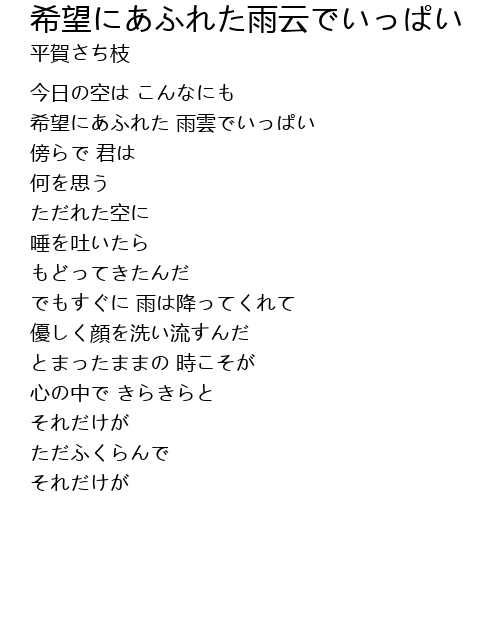 希望にあふれた雨云でいっぱい
平賀さち枝
今日の空は こんなにも
希望にあふれた 雨雲でいっぱい
傍らで 君は
何を思う
ただれた空に
唾を吐いたら
もどってきたんだ
でもすぐに 雨は降ってくれて
優しく顔を洗い流すんだ
とまったままの 時こそが
心の中で きらきらと
それだけが
ただふくらんで
それだけが